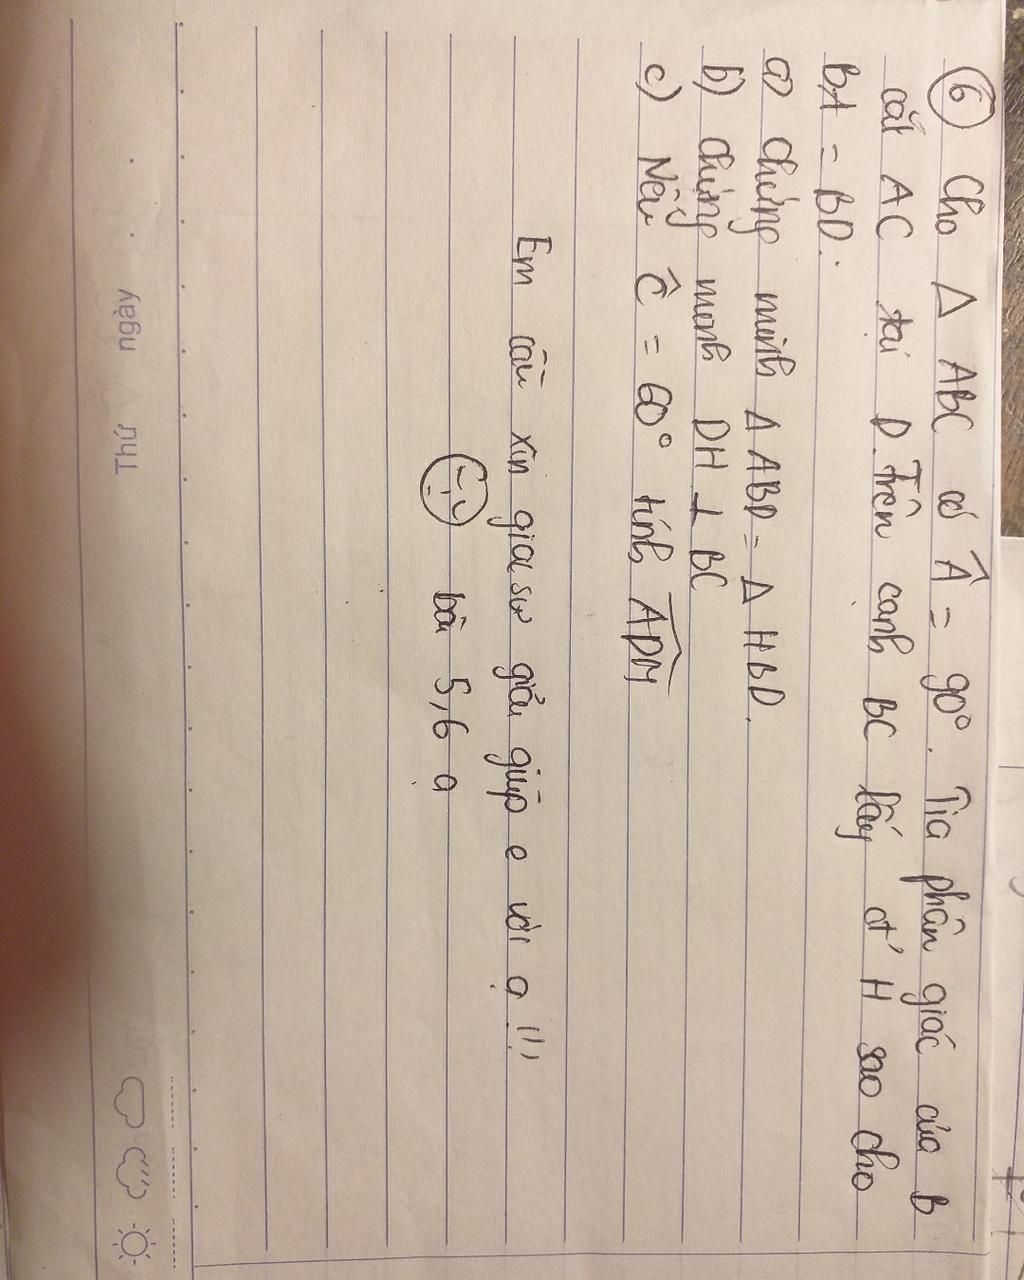 ⑥ Cho Δ ABC có Â = 90°. Tia phân giác của B
cắt AC tại D. Trên cạnh BC lấy đ' H sao cho
BA = BD.
a) chứng minh Δ ABD = Δ HBD.
b) chứng minh DH ⊥ BC
c) Nếu Ĉ = 60° tính ADM
Em cầu xin gia sư giải giúp e với ạ !!!
bài 5,6 ạ
Thứ ngày